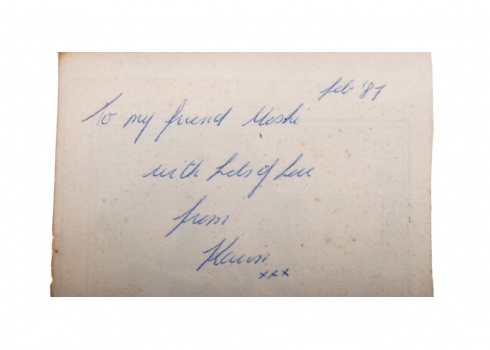 feb '87
To my friend Moshi
with lots of love
from
xxx